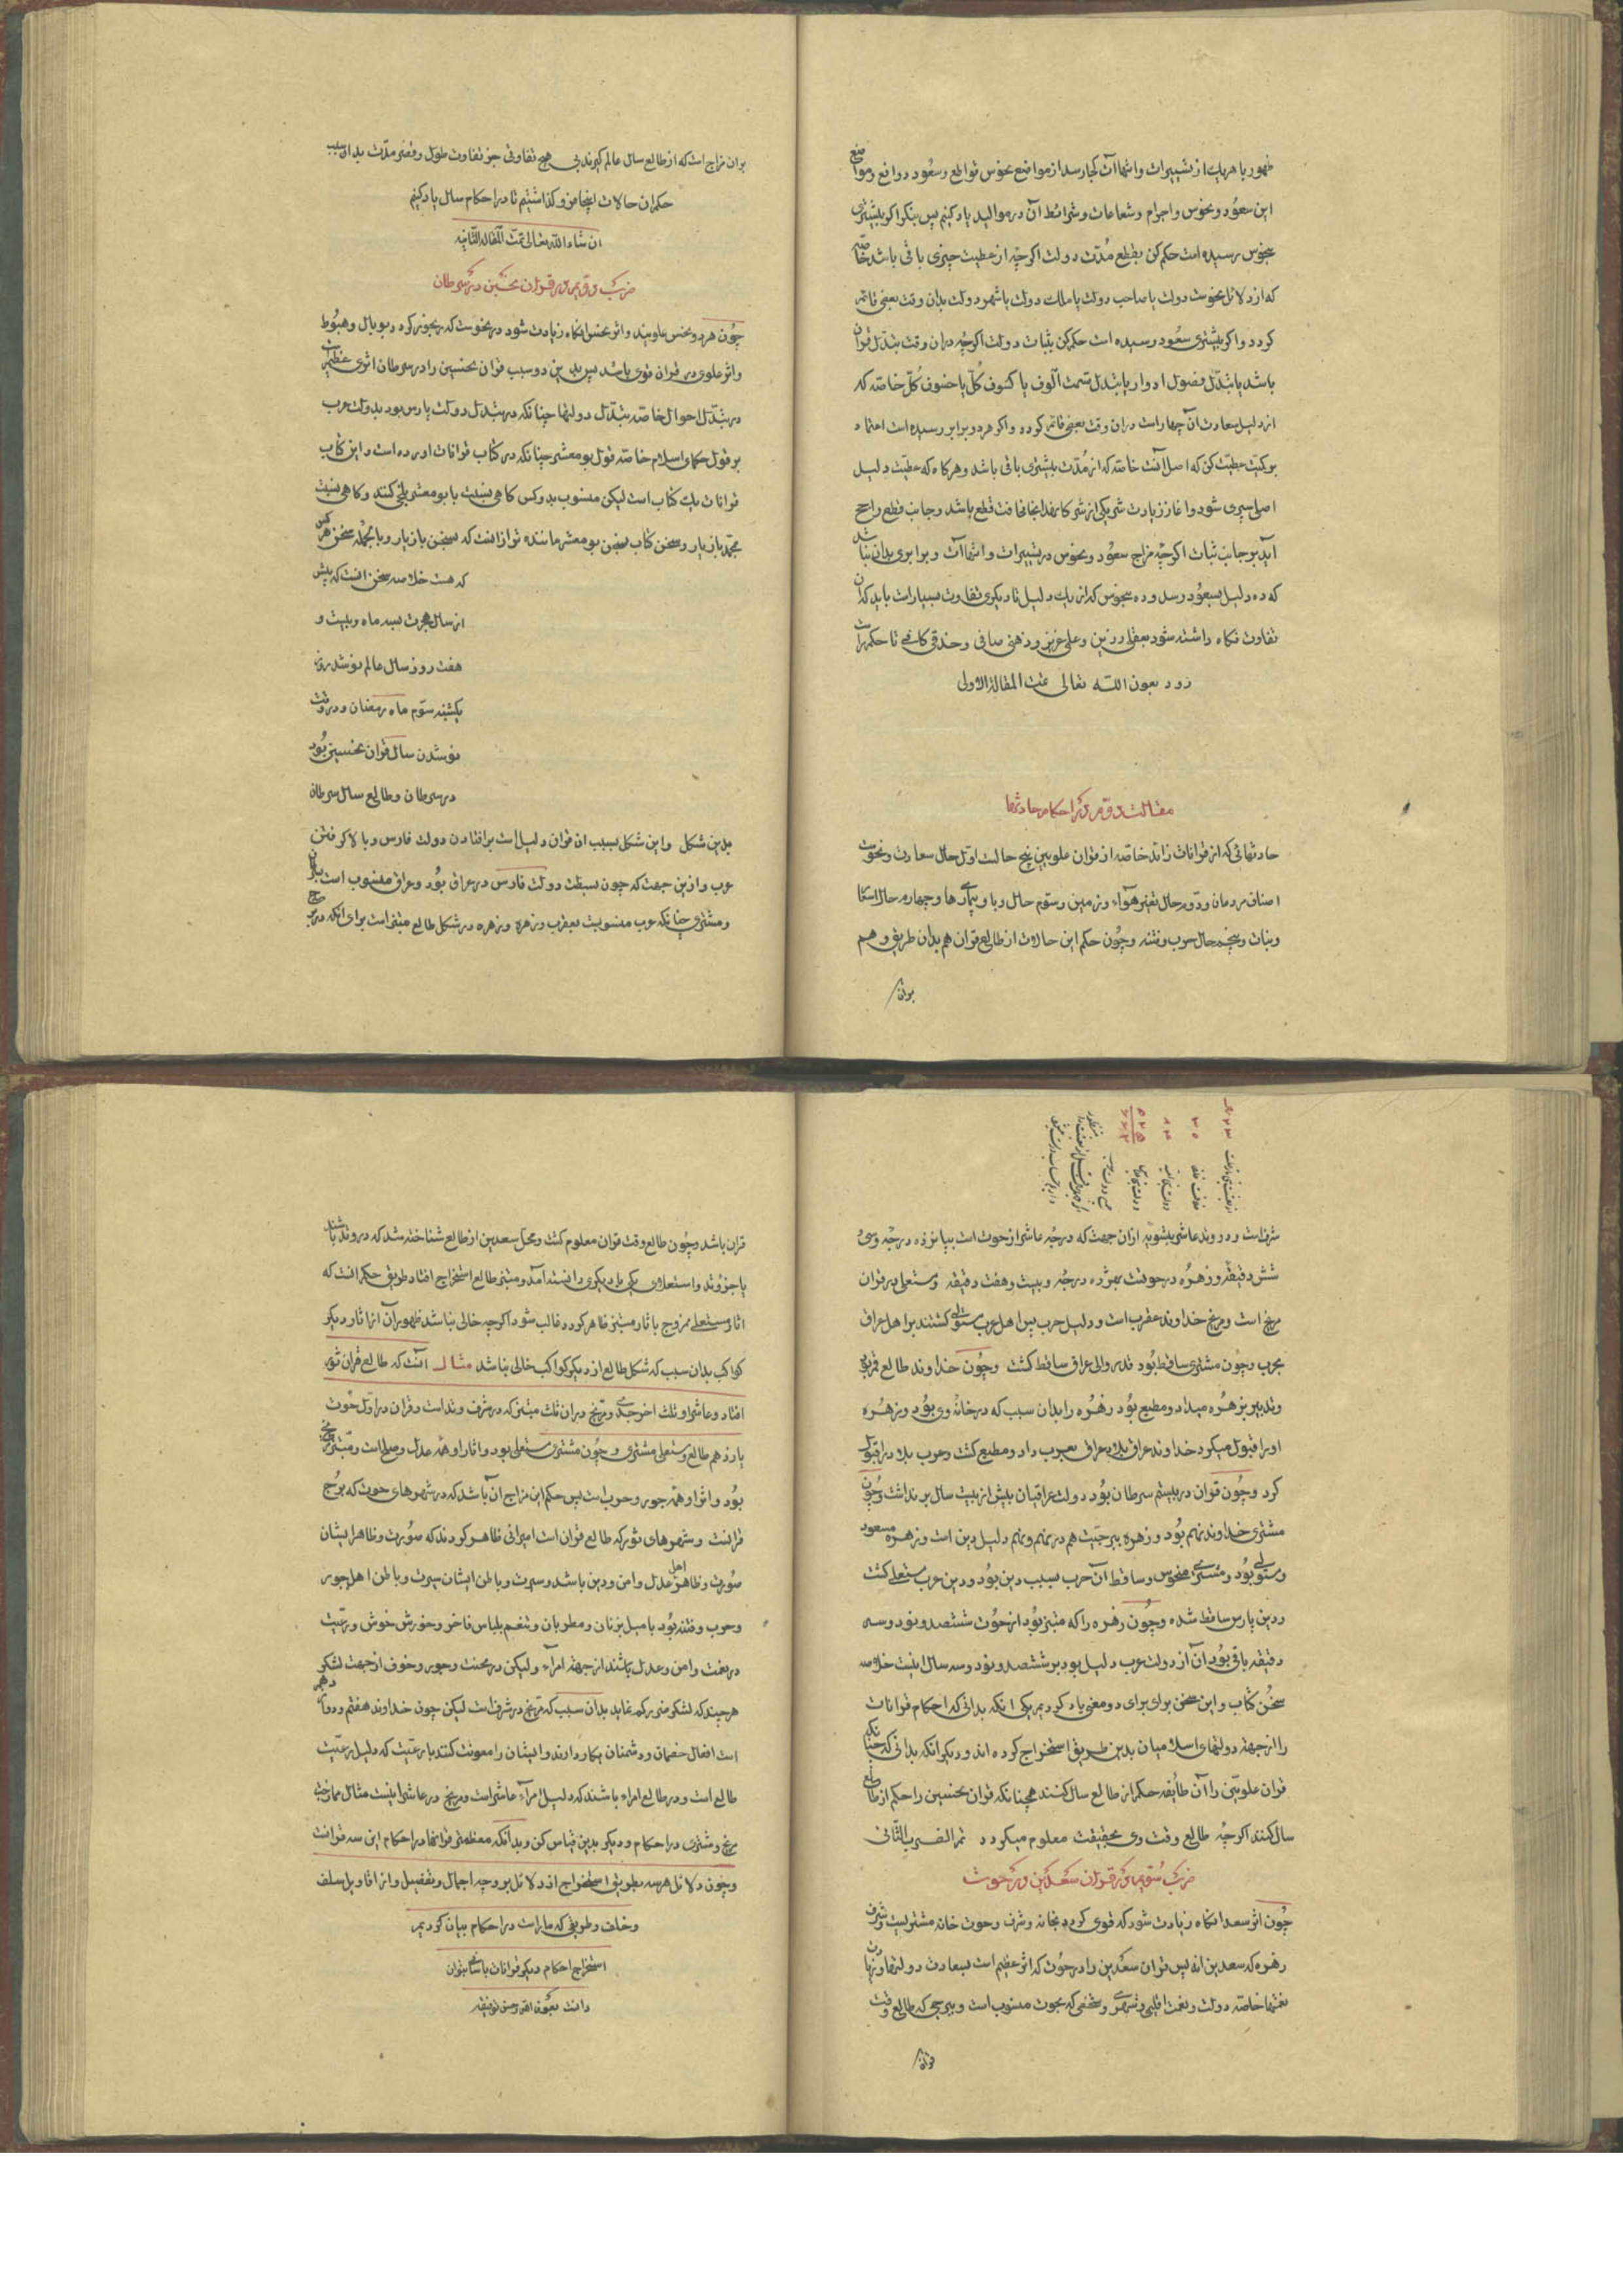 ظهور با هریك از تسییرات و انتهاآت كجا رسد از مواضع نحوس قواطع و سعود دوافع و مواضع
این سعود و نحوس و اجرام و شعاعات و شرائط آن در موالید یاد كنیم پس بنكر اكر بیشتری
بنحوس رسیده است حكم كن بقطع مدت دولت اكر چه از عطیت چیزی باقی باشد خاصه
كه از دلائل نحوست دولت یا صاحب دولت یا ملك دولت یا شهر دولت بدان وقت بعینی قائم
كردد و اكر بیشتری بسعود رسیده است حكم كن بثبات دولت اكر چه دران وقت بتدل قران
باشد یا بتدل فصول ادوار یا بتدل قسمت آلوف یا كسوف كل یا خسوف كل خاصه كه
از دلیل سعادت آن چهار است دران وقت بعینی قائم كردد و اكر هردو برابر رسیده است اعتماد
بر كمیت عطیت كن كه اصل آنست خاصه كه از مدت بیشتری باقی باشد و هركاه كه عطیت دلیل
اصلی سپری شود و آغاز زیادت شریكی از شركا بود انجا مخافت قطع باشد و جانب قطع راجح
آید بر جانب ثبات اكر چه مزاج سعود و نحوس در تسییرات و انتهاآت و برابری بدان نباشد
كه ده دلیل بسعود رسد و ده بنحوس كه از یك دلیل تا دیكری تفاوت بسیار است باید كه آن
تفاوت نكاه داشته شود بعقلی رزین و علمی غزیر و ذهنی صافی و حذقی كافی تا حكم راست
رود بعون الله تعالی تمت المقالة الاولی
مقالت دوم در احكام حادثها
حادثهائی كه از قرانات زاید خاصه از قران علویین پنج حالت اول حال سعادت و نحوست
اصناف مردمان و دوم حال تغیر هواء و زمین و سوم حال وبا و بیماریها و چهارم حال
و نبات و پنجم حال حرب و فتنه و چون حكم این حالات از طالع قران هم بدان طریق و هم
بران
بران مزاج است كه از طالع سال عالم كیرند بی هیچ تفاوتی جز تفاوت طول و قصر مدت بدان سبب
حكم ان حالات اینجا فرو كذاشتیم تا در احكام سال یاد كنیم
ان شاء الله تعالی تمت المقالة الثانیه
ضرب دویم در قران نحسین در سرطان
چون هردو نحس علویند و اثر نحس آنكاه زیادت شود در نحوست كه رنجور كردد بوبال و هبوط
و اثر علوی در قران قوی باشد پس بدین دو سبب قران نحسین را در سرطان اثری عظیم است
در بتدل احوال خاصه بتدل دولتها چنانكه در بتدل دولت پارس بود بدولت عرب
بر قول حكمای اسلام خاصه قول بو معشر چنانكه در كتاب قرانات اورده است و این كتاب
قرانات یك كتاب است لیكن منسوب بدو كس كاهی نسبت بابو معشر بلخی كنند و كاهی نسبت
بمحمد بازیار و سخن كتاب بسخن بو معشر ماننده تر از انست كه بسخن بازیار و بالجمله سخن هر كس
كه هست خلاصه سخن انست كه پیش
از سال هجرت بسه ماه و بیست و
هفت روز سال عالم نو شد روز
یكشنبه سوم ماه رمضان و در وقت
نو شدن سال قران نحسین بود
در سرطان و طالع سال سرطان
بدین شكل و این شكل بسبب ان قران دلیل است بر افتادن دولت فارس و بالا كرفتن
عرب و ازین جهت كه چون بسطت دولت فارس در عراق بود و عراق منسوب است بسرطان
و مشتری چنانكه عرب منسوبست بعقرب و زهره و زهره در شكل طالع مبتز است برای انكه در برج
شرفست و در وتد عاشر بتسویه ازان جهت كه درجه عاشر از حوت است بپانزده درجه و سی و
شش دقیقه و زهره در حوتست بهژده درجه و بیست و هفت دقیقه و مستعلی در قران
مریخ است و مریخ خداوند عقرب است و دلیل حرب پس اهل عرب مستولی كشتند بر اهل عراق
بحرب و چون مشتری ساقط بود قدر والی عراق ساقط كشت و چون خداوند طالع قمر بود
و تدبیر بزهره میداد و مطیع بود زهره را بدان سبب كه در خانه وی بود و زهره
او را قبول میكرد خداوند عراق بلاد عراق بعرب داد و مطیع كشت و عرب بلاد را قبول
كرد و چون قران در بیستم سرطان بود دولت عراقیان بیش از بیست سال بر نداشت و چون
مشتری خداوند نهم بود و زهره ببرجیت هم در نهم و نهم دلیل دین است و زهره مسعود
و مستولی بود و مشتری منحوس و ساقط آن حرب بسبب دین بود و دین عرب مستعلی كشت
و دین پارس ساقط شده و چون زهره را كه مبتز بود از حوت ششصد و نود و سه
دقیقه باقی بود آن از دولت عرب دلیل بود بر ششصد و نود و سه سال اینست خلاصه
سخن كتاب و این سخن برای برای دو معنی یاد كردیم یكی انكه بدانی كه احكام قرانات
را از جهة دولتهای اسلامیان بدین طریق استخراج كرده اند و دیكر انكه بدانی كه چنانكه
قران علویین را آن طایفه حكم از طالع سال كنند همچنانكه قران نحسین را حكم از طالع
سال كنند اكر چه طالع وقت وی بحقیقت معلوم میكردد تم الضرب الثانی
ضرب سویم در قران سعدین در حوت
چون اثر سعد انكاه زیادت شود كه قوی كردد بخانه و شرف و حوت خانه مشتریست و شرف
زهره كه سعدین اند پس قران سعدین را در حوت كه اثر عظیم است بسعادت دولتها و زیادت
نعمتها خاصه دولت و نعمت اقلیم و شهری و شخصی كه بحوت منسوب است و ببرجی كه طالع وقت
قران
قران باشد و چون طالع وقت قران معلوم كشت و محل سعدین از طالع شناخته شد كه در وتد باشند
یا جز وتد و استعلای یكی بر دیكری دانسته آمد و مبتز طالع استخراج افتاد طریق حكم انست كه
اثار مستعلی ممزوج باثار مبتز ظاهر كردد و غالب شود اكر چه خالی نباشد ظهور آن از اثار دیكر
كواكب بدان سبب كه شكل طالع از دیكر كواكب خالی نباشد مثال انست كه طالع قران ثور
افتاد و عاشر او ثلث آخر جدی و مریخ دران ثلث مبتز كه در شرف و تد است و قران در اول حوت
یازدهم طالع و مستعلی مشتری و چون مشتری مستعلی بود و اثار او همه عدل و صلح است و مبتز مریخ
بود و اثر او همه جور و حرب است پس حكم این مزاج ان باشد كه در شهرهای حوت كه برج
قرانست و شهرهای ثور كه طالع قران است امیرانی ظاهر كردند كه صورت و ظاهر ایشان
صورت و ظاهر اهل عدل و امن و دین باشد و سیرت و باطن ایشان سیرت و باطن اهل جور
و حرب و فتنه بود با میل بزنان و مطربان و تنعم بلباس فاخر و خورش خوش و رعیت
در نعمت و امن و عدل باشند از جهة امراء و لیكن در محنت و جور و خوف از جهت لشكر
هرچند كه لشكر نماید بدان سبب كه مریخ در شرفست لیكن چون خداوند هفتم و دوازدهم
است افعال خصمان و دشمنان بكار دارند و ایشان را معونت كنند با رعیت كه دلیل رعیت
طالع است و در طالع امراء باشند كه دلیل امراء عاشر است و مریخ در عاشر اینست مثال ممازجت
مریخ و مشتری در احكام و دیكر بدین قیاس كن و بدانكه معظمترین قرانها در احكام این سه قرانست
و چون دلائل هرسه بطریق استخراج از دلائل بر وجه اجمال و تفصیل و از اقاویل سلف
و خلف و طریقی كه ما راست در احكام بیان كردیم
استخراج احكام دیكر قرانات باسانی بتوان
دانست بعون الله و حسن توفیقه